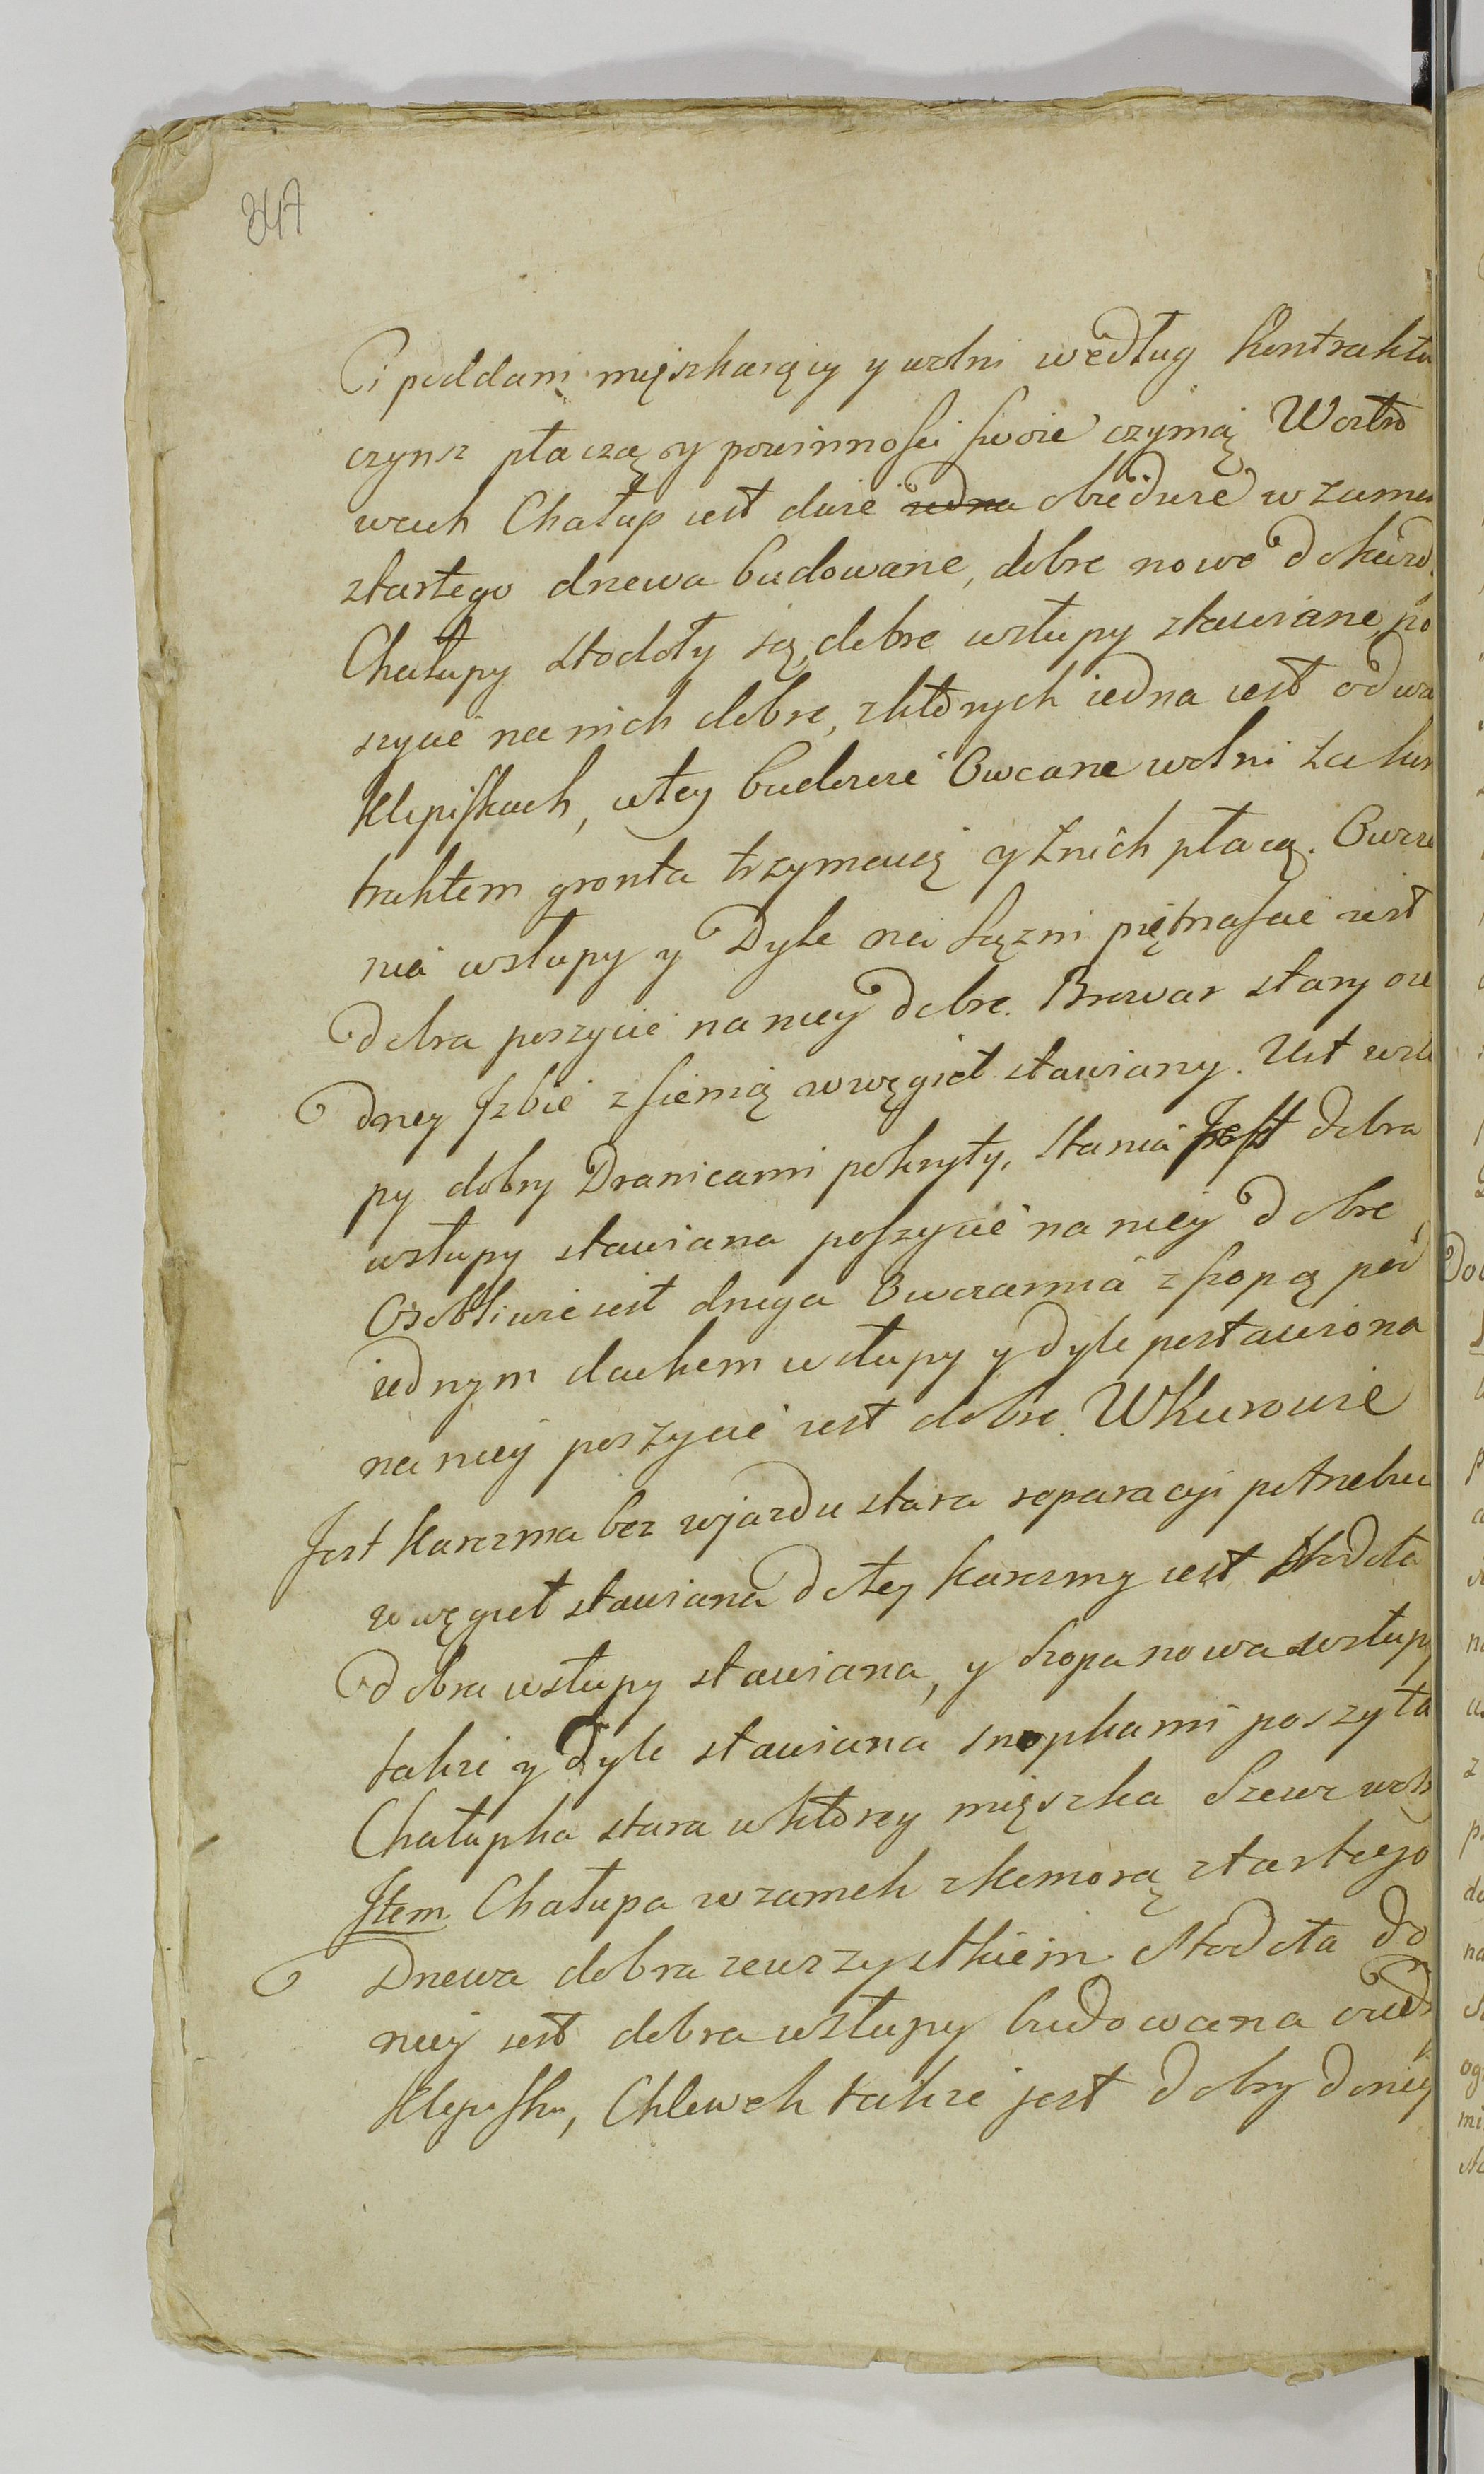 247
Ci poddani mięszkaiący y wolni według Kontraktu
czynsz płaczą y powinności swoie czynią W Ostro
wcuh Chałup iest dwie iedna obiedwie w zamek
z tartego drzewa budowane, dobre nowe do každ.
Chałupy stodoły są dobre wsłupy stawiane, po
szycie na nich dobre, z których iedna iest o dwu
klepiskach, w tey budowie Owcarze wolni za kon
traktem gronta trzymaią y z nich płacą. Owcza
nia wsłupy y Dyle na sążni piętnaście iest
dobra poszycie na niey dobre. Browar stary o ie
dney Izbie z sienią w węgieł stawiany. Ul wsłu
py dobry Dranicami pokryty, Stania Jest dobra
wsłupy stawiana poszycie na niey dobre
Osobliwie iest druga Owczarnia z szopą pod
iednym dachem w słupy y dyle postawiona
na niey poszycie iest dobre. W Kurowie
Jest Karczma bez wjazdu stara reparacyi potrzebuie
w węgieł stawiana do tey karczmy iest stodoła
dobra wsłupy stawiana, y szopa nowa wsłupy
takze y dyle stawiana snopkami poszyta
Chałupka stara w ktorey mięszka Szewc wolny
Item Chałupa w zamek z komorą z tartego
Drzewa dobra ze wszystkiem Stodoła do
niey iest dobra wsłupy budowana o ied
Klepisku, Chlewek takze jest dobry do niey